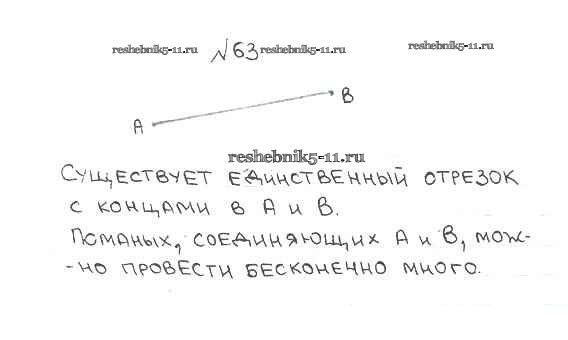 reshebnik5-11.ru №63 reshebnik5-11.ru reshebnik5-11.ru
B
A
reshebnik5-11.ru
СУЩЕСТВУЕТ ЕДИНСТВЕННЫЙ ОТРЕЗОК
С КОНЦАМИ В А и В.
ЛОМАНЫХ, СОЕДИНЯЮЩИХ А и В, МОЖ-
-НО ПРОВЕСТИ БЕСКОНЕЧНО МНОГО.